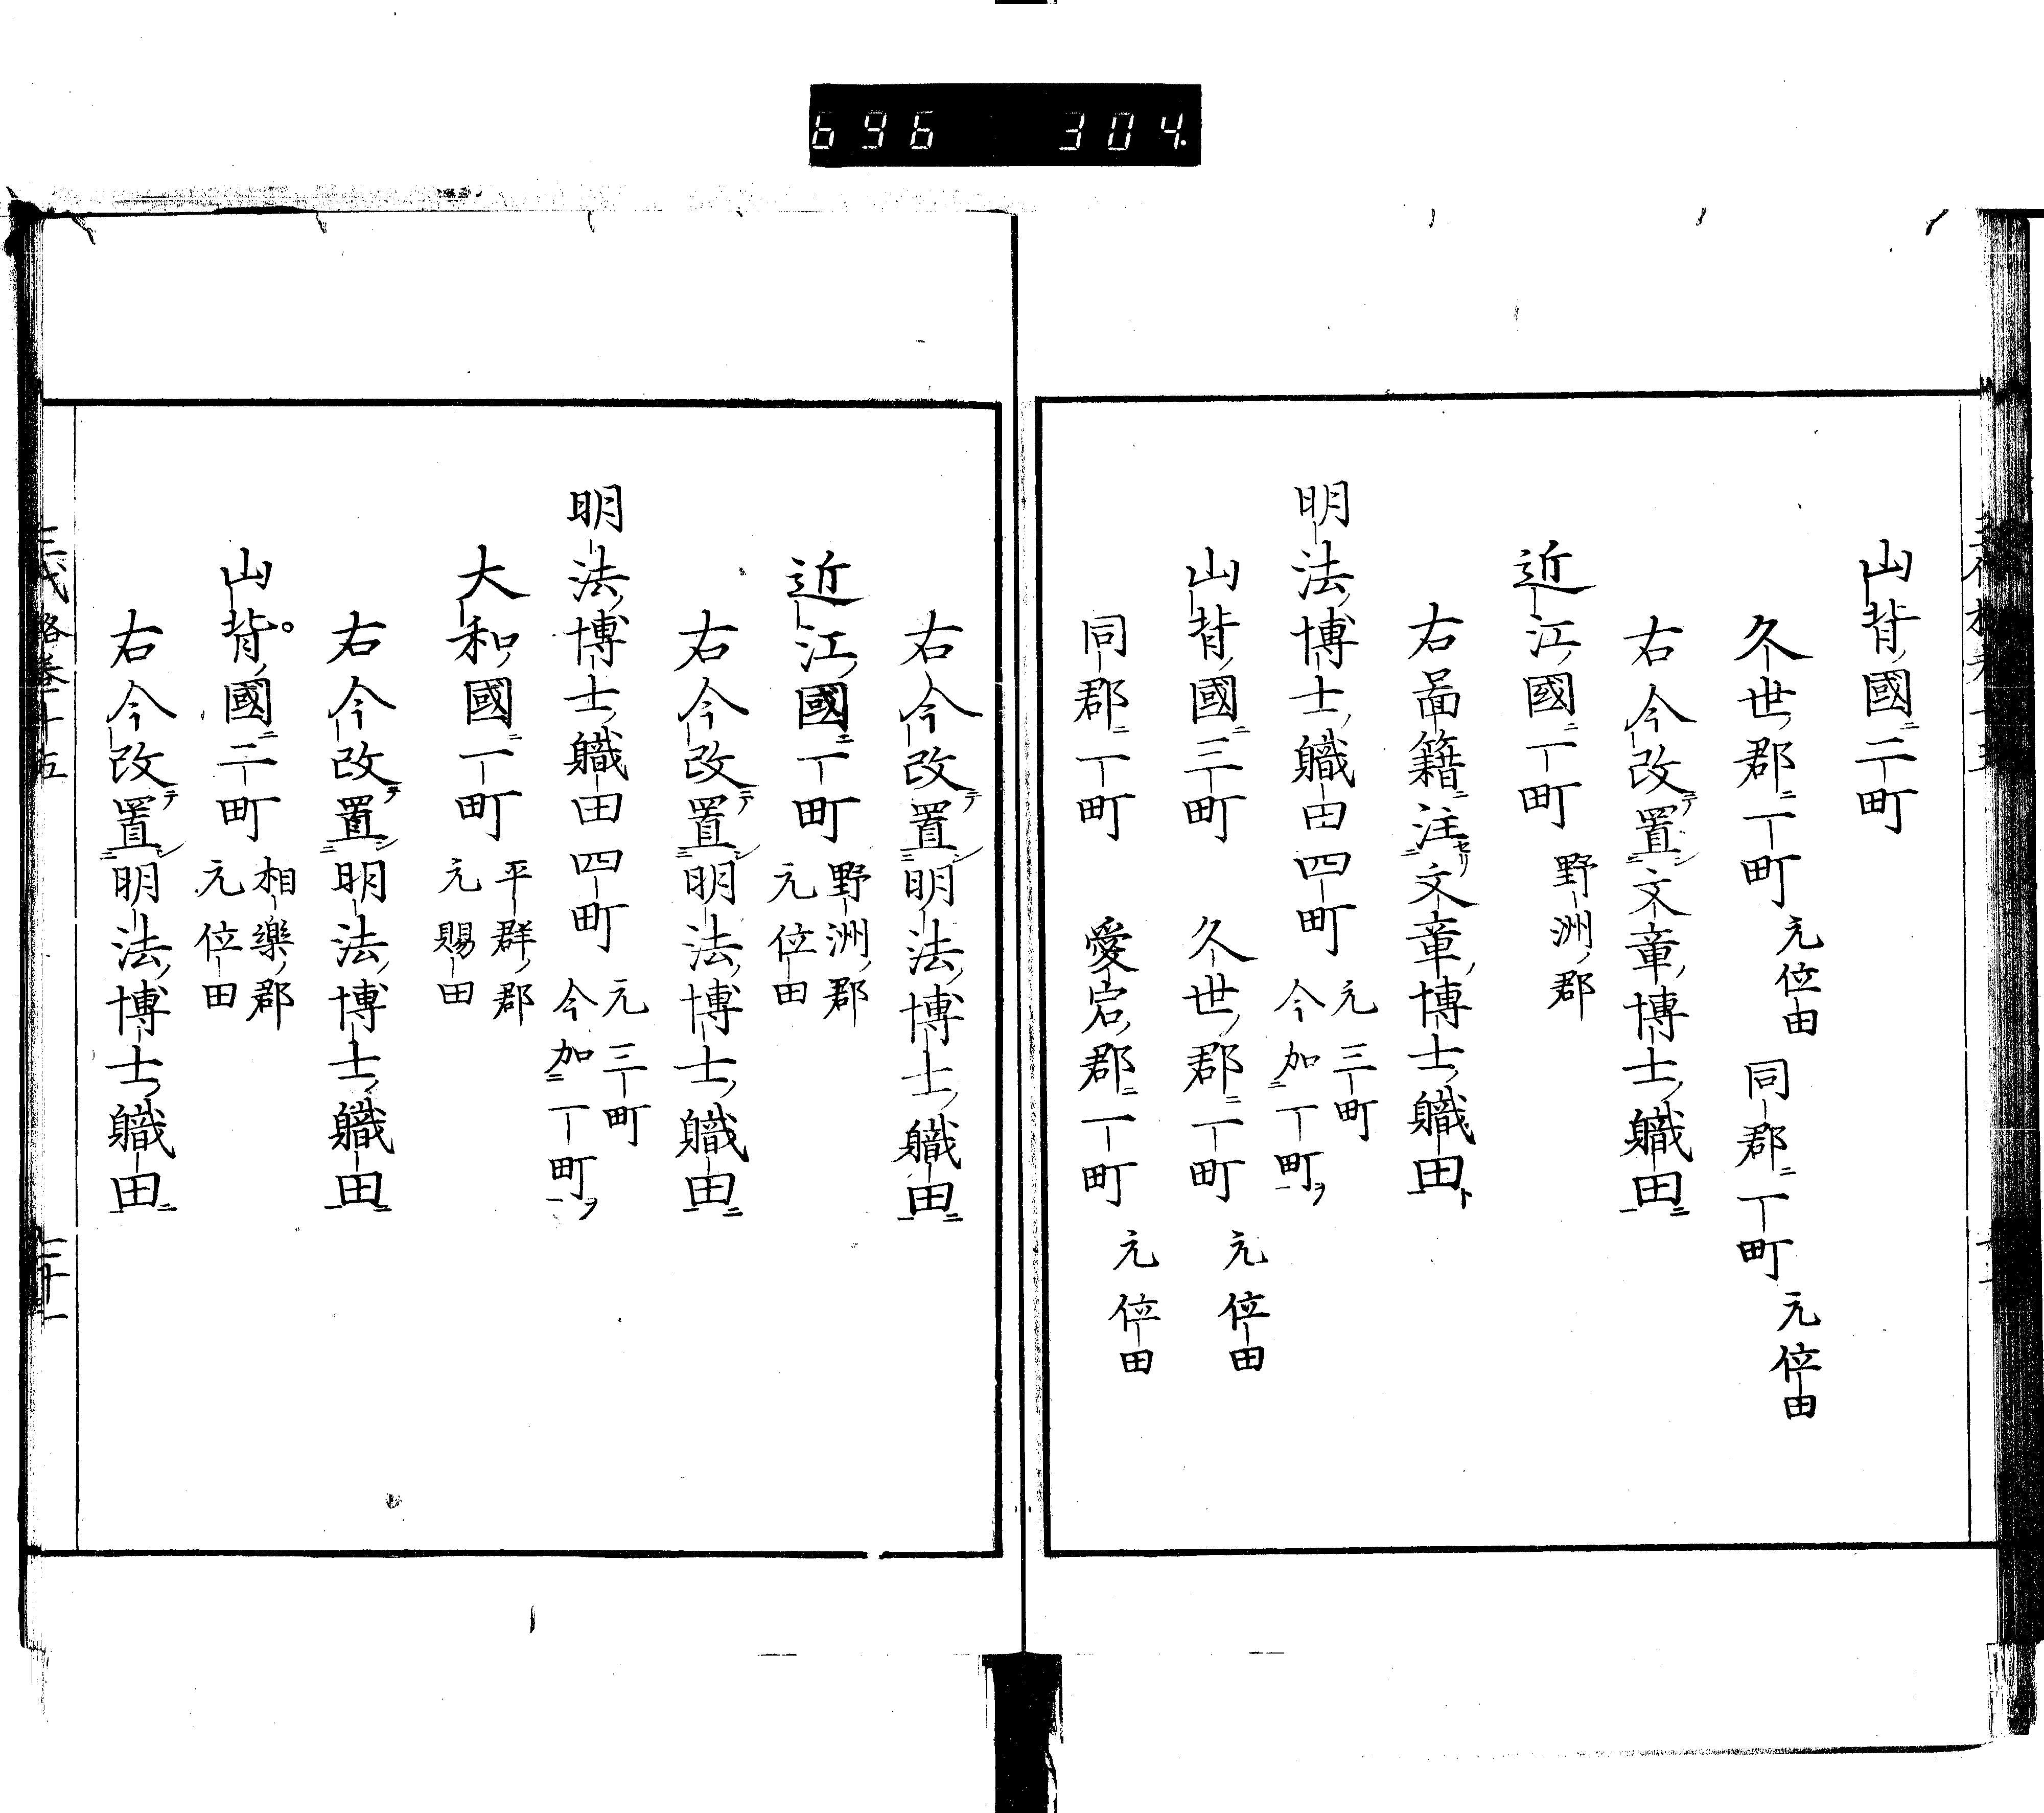 696 304
山背國二町
久世郡一町 元位田 同郡一町 元位田
右今改置文章博士職田
近江國一町 野洲郡
右啚籍注文章博士職田
明法博士職田四町 元三町 今加一町
山背國三町 久世郡一町 元位田
同郡一町 愛宕郡一町 元位田
右今改置明法博士職田
近江國一町 野洲郡 元位田
右今改置明法博士職田
明法博士職田四町 元三町 今加一町
大和國一町 平群郡 元賜田
右今改置明法博士職田
山背國二町 相樂郡 元位田
右今改置明法博士職田